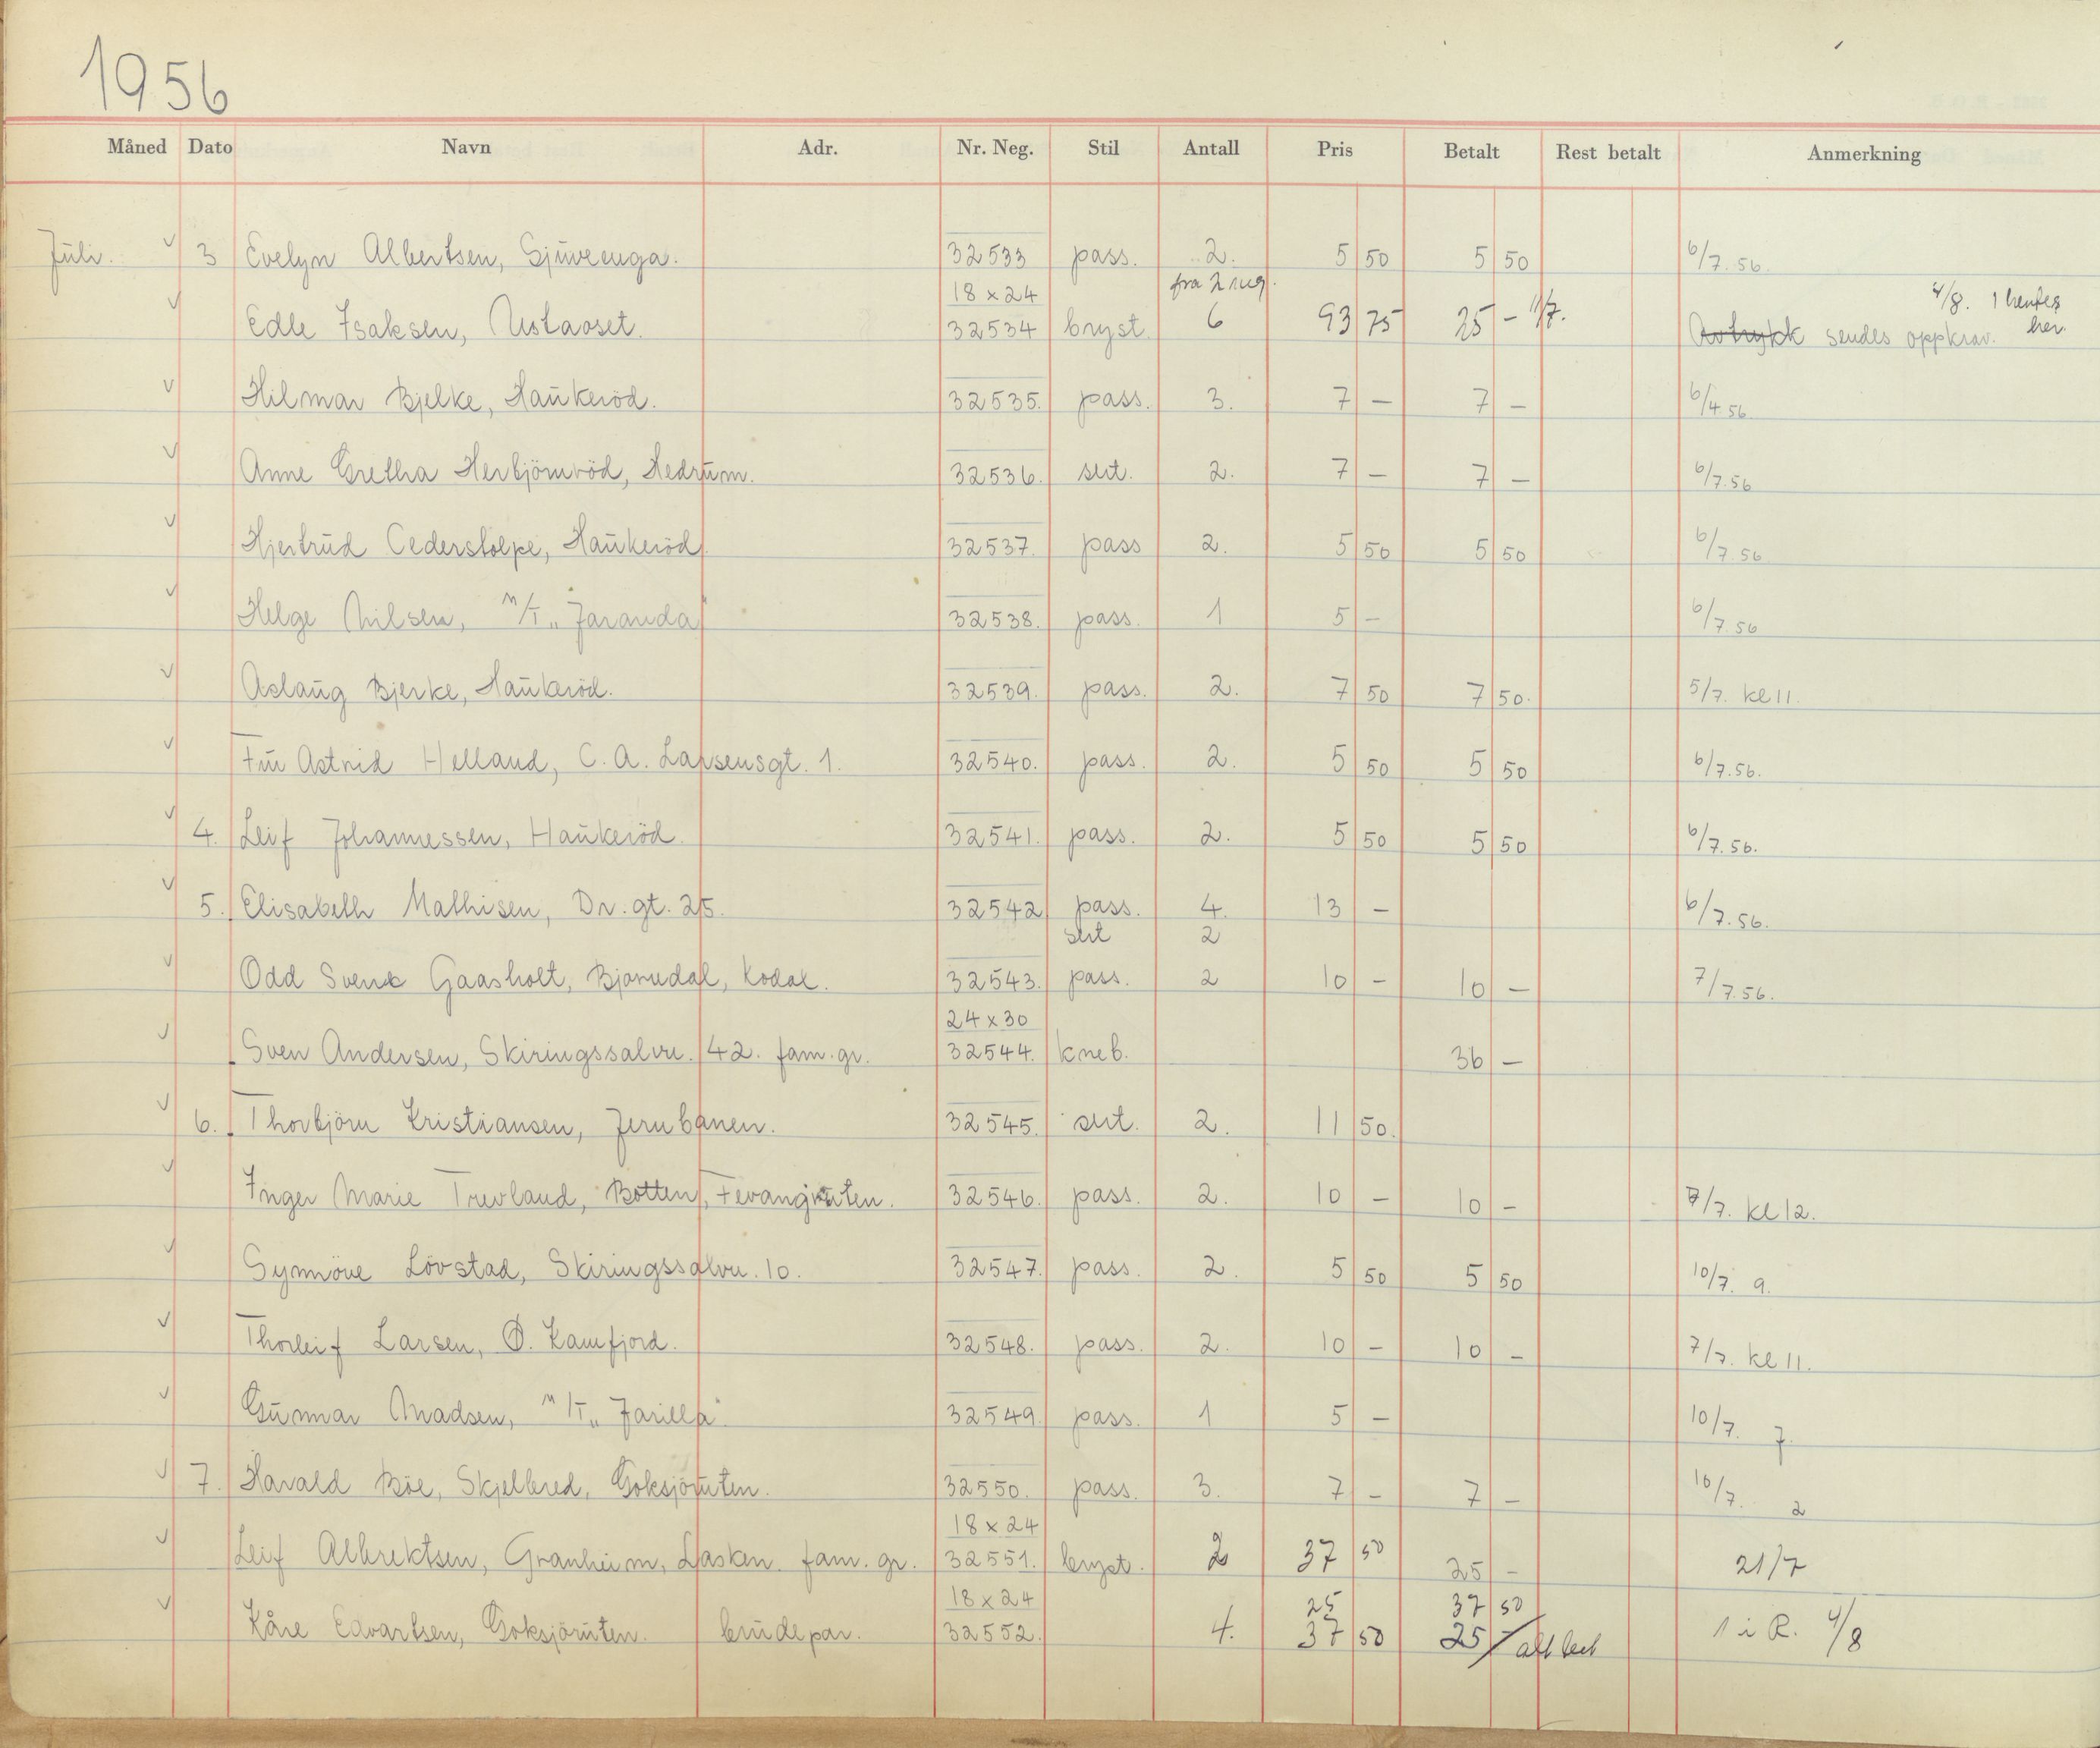 1956
Måned Dato Navn Adr. Nr. Neg. Stil Antall Pris Betalt Rest betalt Anmerkning
Juli. √ 3 Evelyn Albertsen, 32533 pass. 2. 5 50 5 50 6/7.56.
18 x 24 fra 2 neg. 4/8. 1 hentes
√ Edle Isaksen, Ustaoset. 32534 bryst 6 93 75 25 - 11/7. Avtrykk sendes oppkrav. her.
√ Hilmar Bjelke, Haukeröd. 32535. pass. 3. 7 - 7 - 6/4 56.
√ Anne Gretha Herbjörnröd, Hedrum. 32536. sut. 2. 7 - 7 - 6/7.56
√ Hjertrud Cederstolpe, Haukeröd. 32537. pass 2. 5 50 5 50 6/7.56
√ Helge Nilsen, M/T „Jaranda" 32538. pass. 1 5 - 6/7.56
√ Aslaug Bjerke, Haukeröd. 32539. pass. 2. 7 50 7 50. 5/7. kl 11.
√ Fru Astrid Helland, C. A. Larsensgt. 1. 32540. pass. 2. 5 50 5 50 6/7.56.
√ 4. Leif Johannessen, Haukeröd. 32541. pass. 2. 5 50 5 50 6/7.56.
√ 5. Elisabeth Mathisen, Dr. gt. 25. 32542 pass. 4. 13 - 6/7.56.
sut 2
√ Odd Svenk Gaasholt, Bjørndal, Kodal. 32543. pass. 2 10 - 10 - 7/7.56.
24 x 30
√ Sven Andersen, Skiringssalvn. 42. fam. gr. 32544. kneb. 36 -
√ 6. Thorbjörn Kristiansen, Jernbanen. 32545. sut. 2. 11 50.
√ Inger Marie Trevland, Botten, Fevangruten. 32546. pass. 2. 10 - 10 - 7/7. kl 12.
√ Synnöve Lövstad, Skiringssalvn. 10. 32547. pass. 2. 5 50 5 50 10/7. 9.
√ Thorleif Larsen, Ø. Kamfjord. 32548. pass. 2. 10 - 10 - 7/7. kl 11.
√ Gunnar Madsen, M/T „Jarilla" 32549. pass. 1 5 - 10/7. 7.
√ 7. Harald Böe, Skjelbred, Goksjöruten. 32550. pass. 3. 7 - 7 - 10/7. 2
18 x 24
√ Leif Albrektsen, Granheim, Lasken. fam. gr. 32551. bryst. 2 37 50 25 - 21/7
18 x 24 25 37 50
√ Kåre Edvartsen, Goksjöruten. brudepar. 32552. 4. 37 50 25 - alt bet 1 i R. 4/8